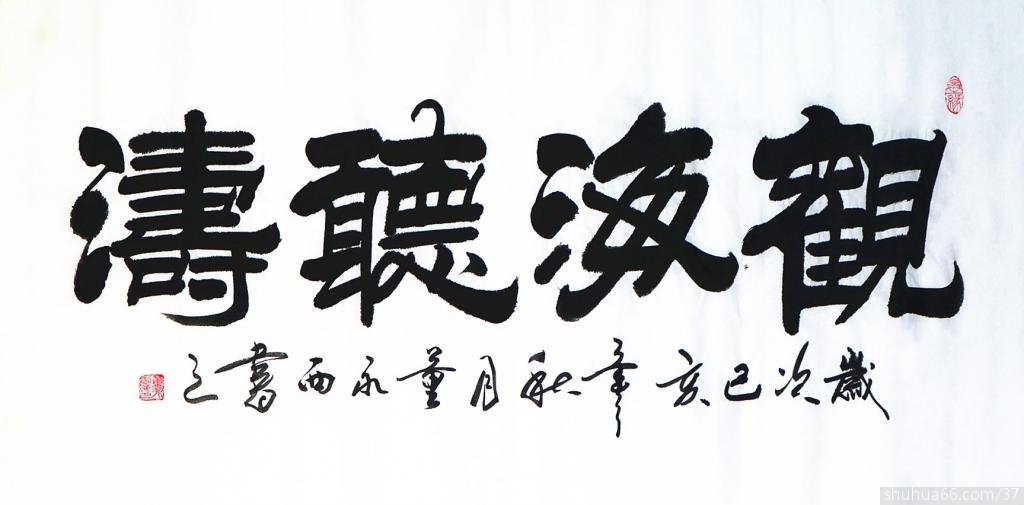 觀海聽濤
歲次己亥年秋月董永西書之
shuhua66.com/37